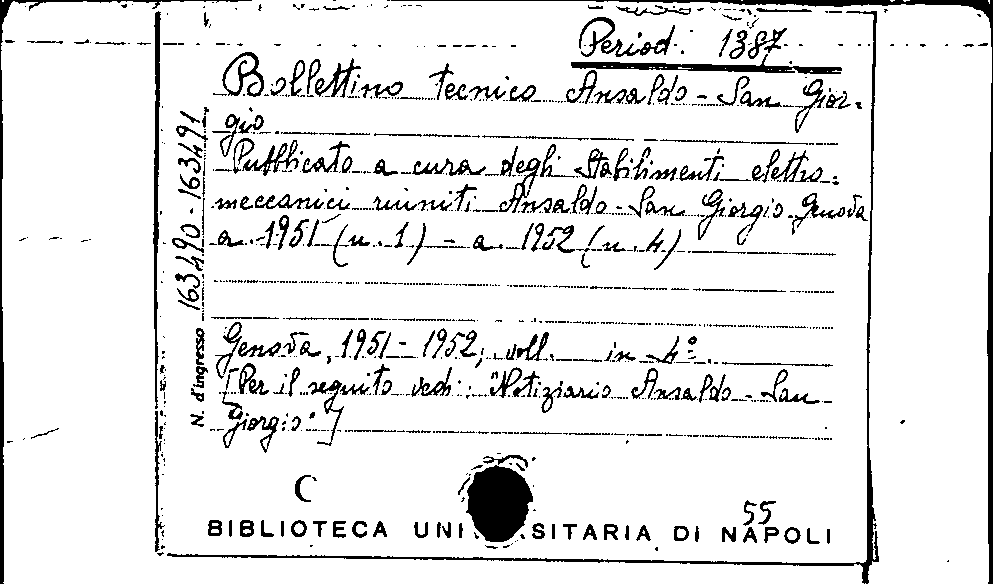 Period. 1387
Bollettino tecnico Ansaldo - San Gior=
gio
Pubblicato a cura degli Stabilimenti elettro=
meccanici riuniti Ansaldo - San Giorgio. Genova
a. 1951 (n. 1) - a. 1952 (n. 4)
N. d'ingresso 163490 - 163491
Genova, 1951 - 1952, voll. in 4º.
[Per il seguito vedi: "Notiziario Ansaldo - San
Giorgio"]
C
55
BIBLIOTECA UNI SITARIA DI NAPOLI